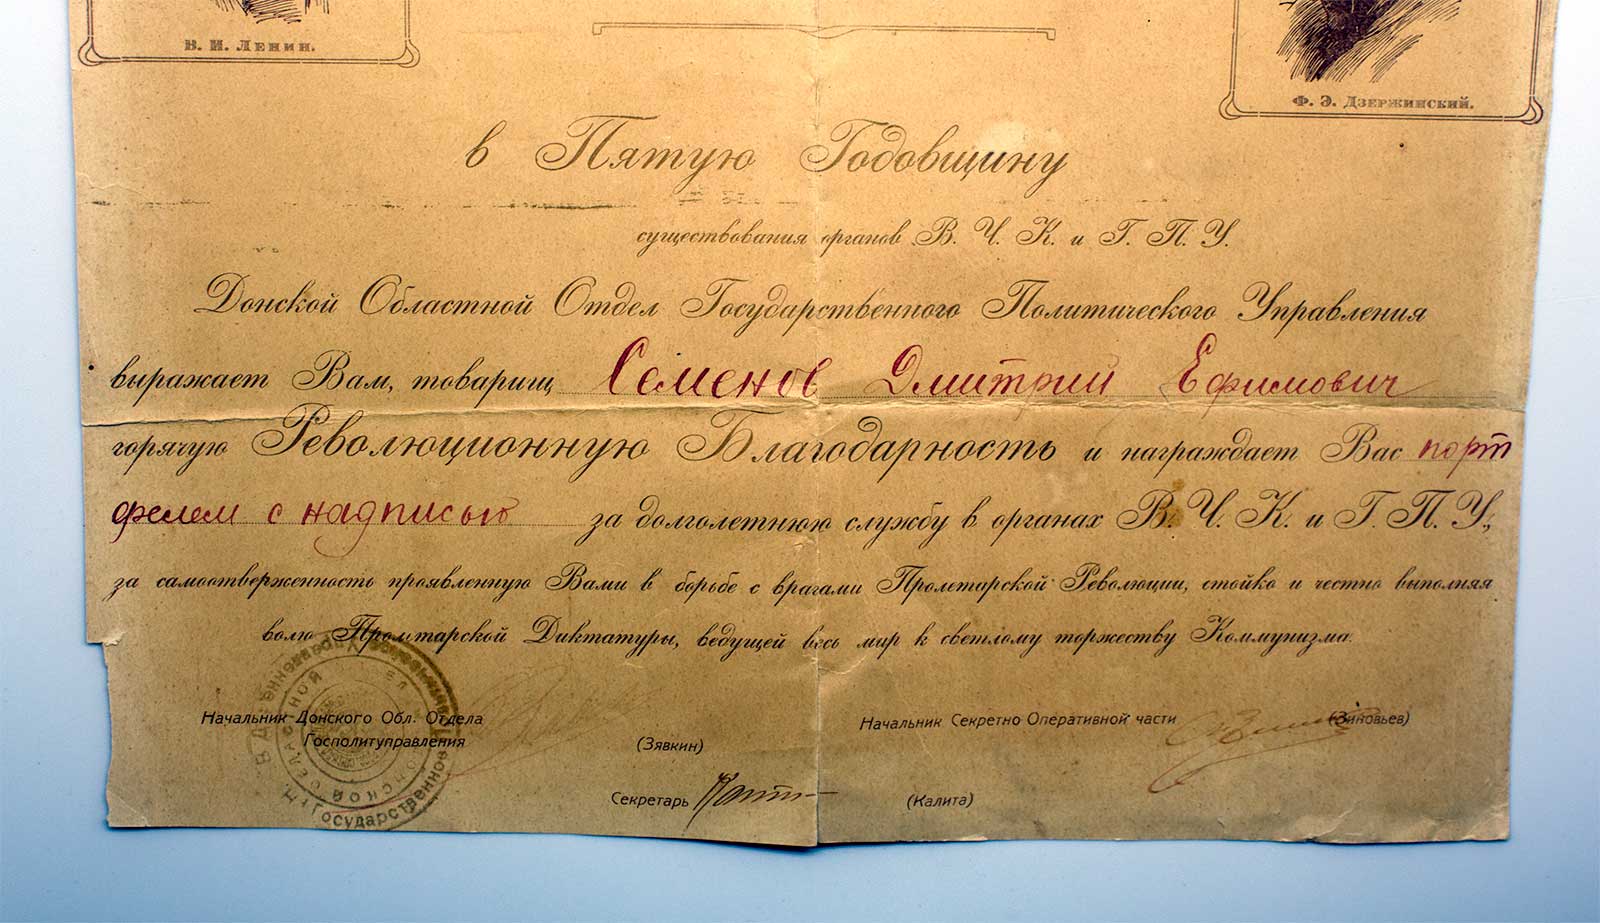 В. И. Ленин.
Ф. Э. Дзержинский.
в Пятую Годовщину
существования органов В. Ч. К. и Г. П. У.
Донской Областной Отдел Государственного Политического Управления
выражает Вам, товарищ Семенов Дмитрий Ефимович
горячую Революционную Благодарность и награждает Вас порт
фелем с надписью за долголетнюю службу в органах В. Ч. К. и Г. П. У.,
за самоотверженность проявленную Вами в борьбе с врагами Пролетарской Революции, стойко и честно выполняя
волю Пролетарской Диктатуры, ведущей весь мир к светлому торжеству Коммунизма.
Начальник Донского Обл. Отдела
Госполитуправления (Зявкин)
Начальник Секретно Оперативной части (Зиновьев)
Секретарь (Калита)